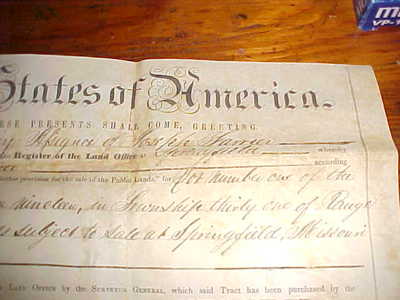 M
VP-1
States of America.
ESE PRESENTS SHALL COME, GREETING.
Assignee of Joseph
the Register of the Land Office at whereby
according
further provision for the sale of the Public Lands," for Lot number one of the
nineteen, in Township thirty one of Range
subject to sale at Springfield, Missouri
Land Office by the Surveyor General, which said Tract has been purchased by the